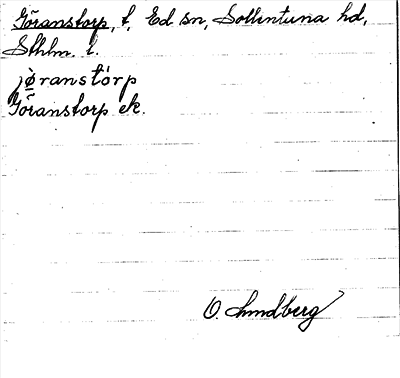 Göranstorp, t, Ed sn, Sollentuna hd,
Sthlm. l.
jø̀ranstórp
Göranstorp ek.
O. Lundberg